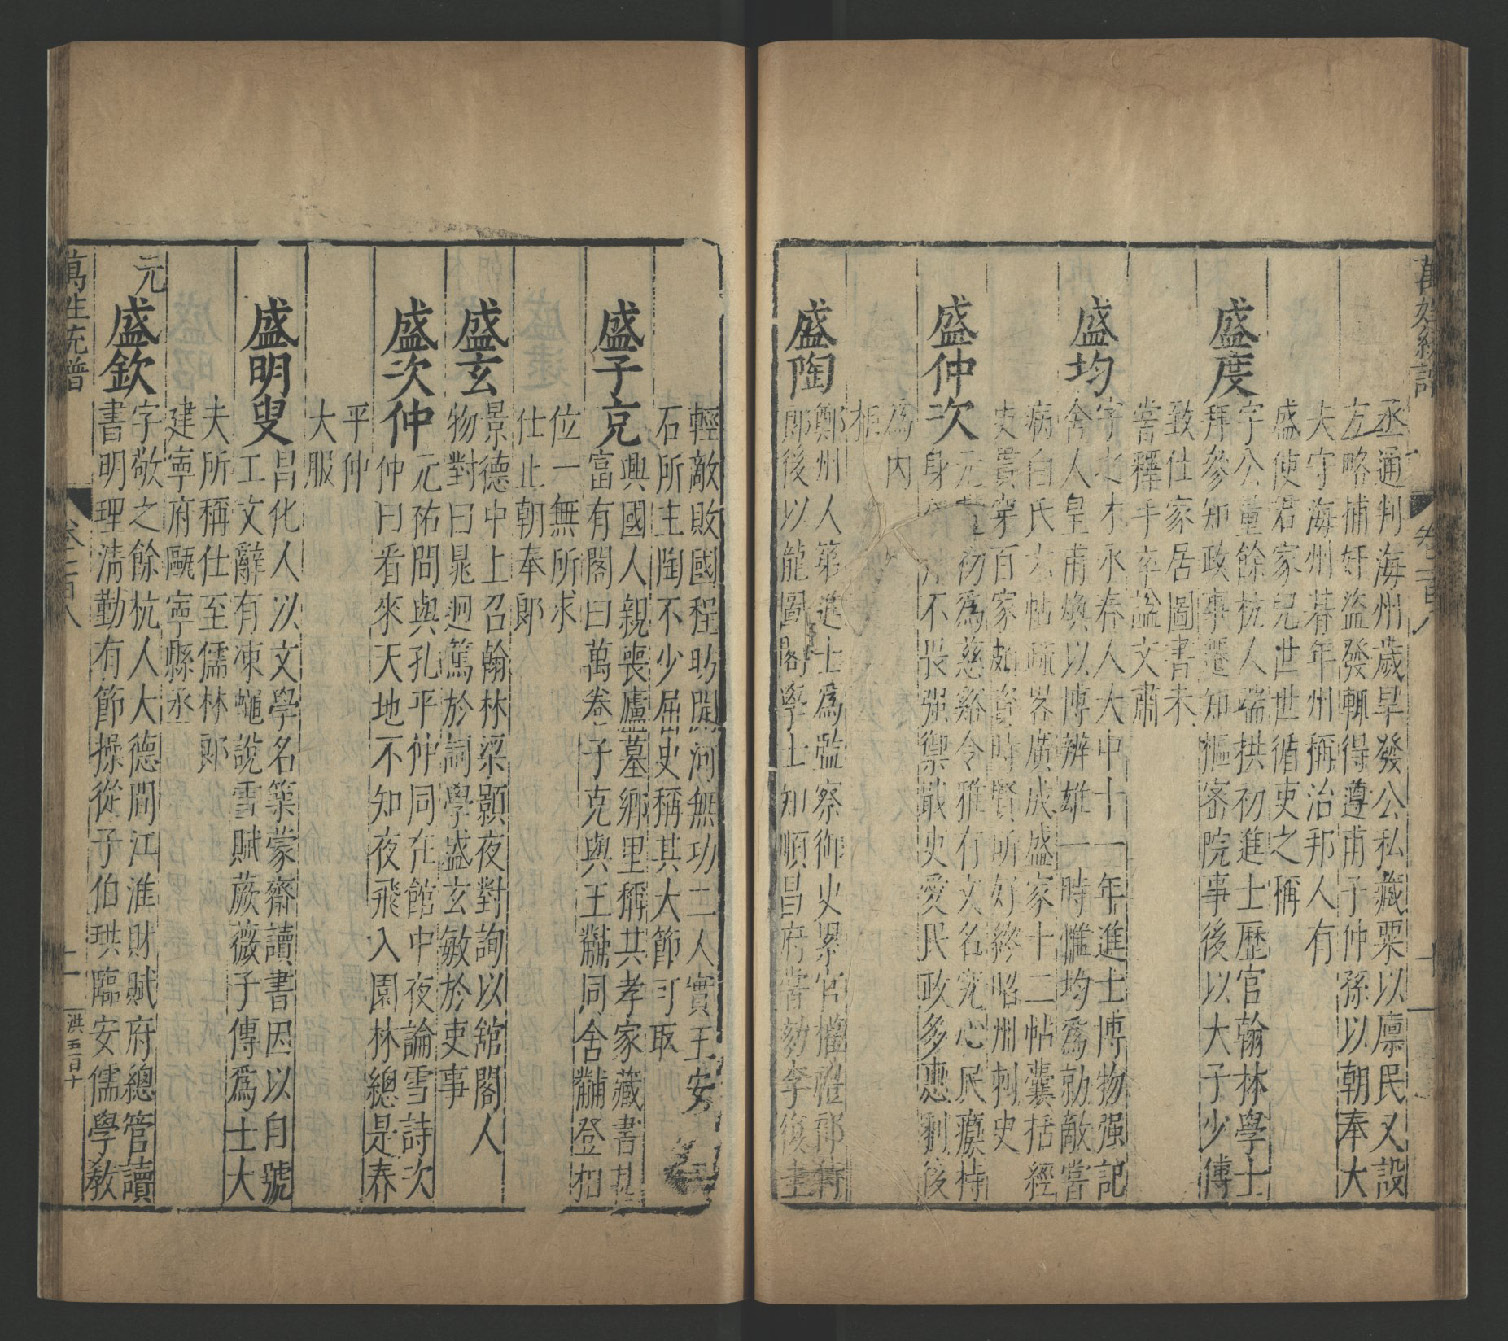 萬姓統譜
卷一百八
丞通判海州歲旱發公私藏粟以廪民又設
方略捕奸盜發輒得遵甫子仲孫以朝奉大
夫守海州暮年州稱治邦人有
盛使君家兒世世循吏之稱
盛度
字公量餘杭人端拱初進士歷官翰林學士
拜參知政事遷知樞密院事後以太子少傅
致仕家居圖書未
嘗釋手卒諡文肅
盛均
字之才永春人大中十一年進士博物强記
舍人皇甫煥以博辨雄一時惟均爲勍敵嘗
病白氏六帖疏畧廣成盛家十二帖囊括經
史貫穿百家尤當時賢所好終昭州刺史
盛仲次
元 初爲慈谿令雅有文名究心民瘼持
身 不畏强禦戢吏愛民政多惠剗後
爲内
柜
盛陶
鄭州人第進士爲監察御史累官權禮部侍
郎後以龍圖閣學士知順昌府嘗劾李復圭
輕敵敗國程昉開河無功二人實王安
石所主陶不少屈史稱其大節可取
盛子充
興國人親喪廬墓鄉里稱其孝家藏書甚
富有閣曰萬卷子克與王黼同舍黼登相
位一無所求
仕止朝奉郎
盛玄
景德中上召翰林梁顥夜對詢以舘閣人
物對曰晁迥篤於詞學盛玄敏於吏事
盛次仲
元祐間與孔平仲同在館中夜論雪詩次
仲曰看來天地不知夜飛入園林總是春
平仲
大服
盛明叟
昌化人以文學名築蒙齋讀書因以自號
工文辭有凍蠅說雪賦蕨薇子傳爲士大
夫所稱仕至儒林郎
元
盛欽
字敬之餘杭人大德間江淮財賦府總管讀
書明理清勤有節操從子伯珙臨安儒學教
建寧府甌寧縣丞
萬姓統譜
卷一百八
十一
洪五百十